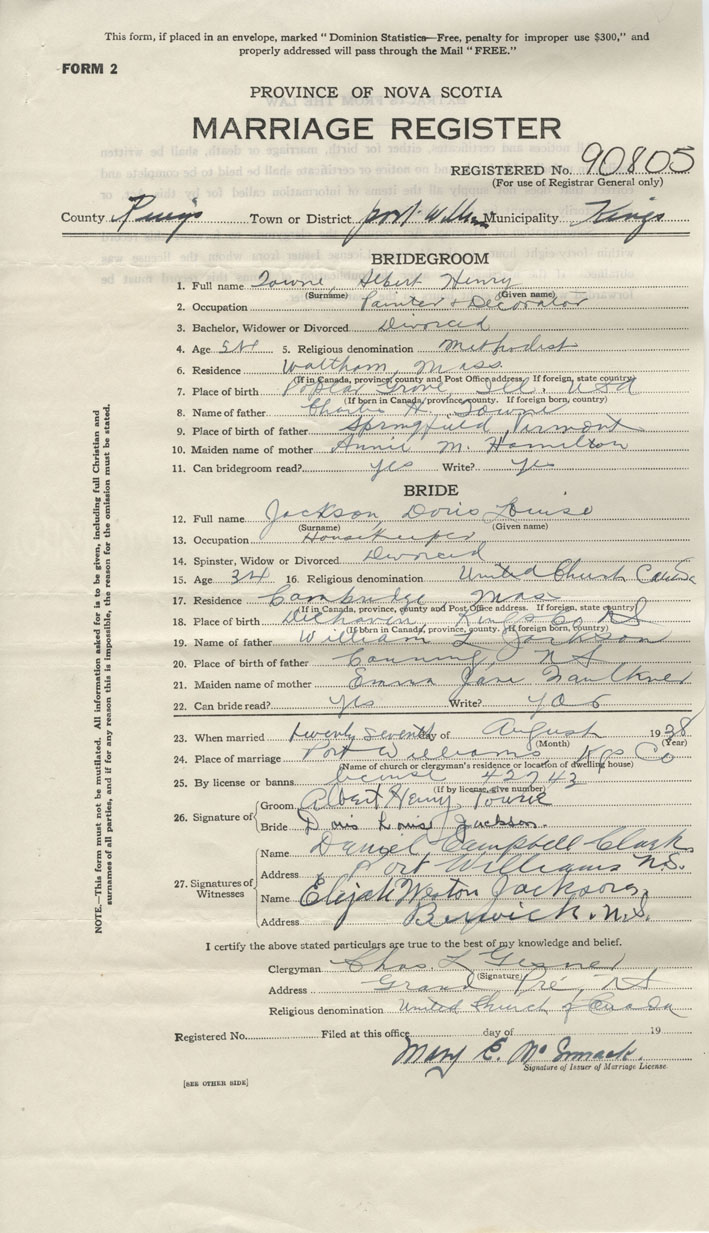 This form, if placed in an envelope, marked "Dominion Statistics—Free, penalty for improper use $300," and
properly addressed will pass through the Mail "FREE."
FORM 2
PROVINCE OF NOVA SCOTIA
MARRIAGE REGISTER
REGISTERED No. 90805
(For use of Registrar General only)
County Kings Town or District Port Williams Municipality Kings
BRIDEGROOM
1. Full name Towne, Albert Henry
(Surname) (Given name)
2. Occupation Painter + Decorator
3. Bachelor, Widower or Divorced Divorced
4. Age 54 5. Religious denomination Methodist
6. Residence Waltham, Mass.
(If in Canada, province, county and Post Office address. If foreign, state country)
7. Place of birth Poplar Grove, Ill. USA
(If born in Canada, province, county. If foreign born, country)
8. Name of father Charles H. Towne
9. Place of birth of father Springfield, Virmont
10. Maiden name of mother Annie M. Hamilton
11. Can bridegroom read? yes Write? yes
BRIDE
12. Full name Jackson, Doris Louise
(Surname) (Given name)
13. Occupation Housekeeper
14. Spinster, Widow or Divorced Divorced
15. Age 34 16. Religious denomination United Church Canada
17. Residence Cambridge, Mass
(If in Canada, province, county and Post Office address. If foreign, state country)
18. Place of birth Kings Co NS
(If born in Canada, province, county. If foreign born, country)
19. Name of father William L. Jackson
20. Place of birth of father Canning, NS
21. Maiden name of mother Emma Jane Faulkner
22. Can bride read? yes Write? yes
23. When married twenty seventh day of August 1938
(Month) (Year)
24. Place of marriage Port Williams Kgs Co
(Name of church or clergyman's residence or location of dwelling house)
25. By license or banns license 42743
(If by license, give number)
26. Signature of Groom Albert Henry Towne
Bride Doris Louise Jackson.
27. Signatures of Witnesses
Name Daniel Campbell Clark
Address Port Williams N.S.
Name Elijah Weston Jackson,
Address Berwick. N.S.
I certify the above stated particulars are true to the best of my knowledge and belief.
Clergyman Chas. L Gesner
(Signature)
Address Grand Pré, NS
Religious denomination United Church of Canada
Registered No. Filed at this office day of 19
Mary E. McCormack.
Signature of Issuer of Marriage License
[SEE OTHER SIDE]
NOTE.—This form must not be mutilated. All information asked for is to be given, including full Christian and
surnames of all parties, and if for any reason this is impossible, the reason for the omission must be stated.